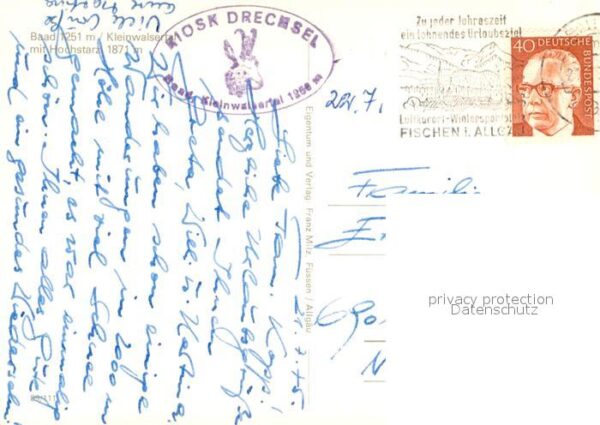 Baad 1251 m Kleinwalsertal
mit Hochstarz 1871 m
KIOSK DRECHSEL
Baad Kleinwalsertal 1256 m
Zu jeder Jahreszeit
ein lohnendes Urlaubsziel
Luftkurort-Wintersport
FISCHEN i. ALLG.
40
DEUTSCHE
BUNDESPOST
22.7.
Eigentum und Verlag Franz Milz, Füssen / Allgäu
21.7.75
Liebe Fam. Kopp!
Herzliche Urlaubsgrüße
sendet Ihnen
Wir haben schon einige
Wanderungen in 2000 m
Höhe mit viel Schnee
gemacht, es war einmalig
schön. Ihnen alles Gute
und ein gesundes Wiedersehn!
Familie
privacy protection
Datenschutz